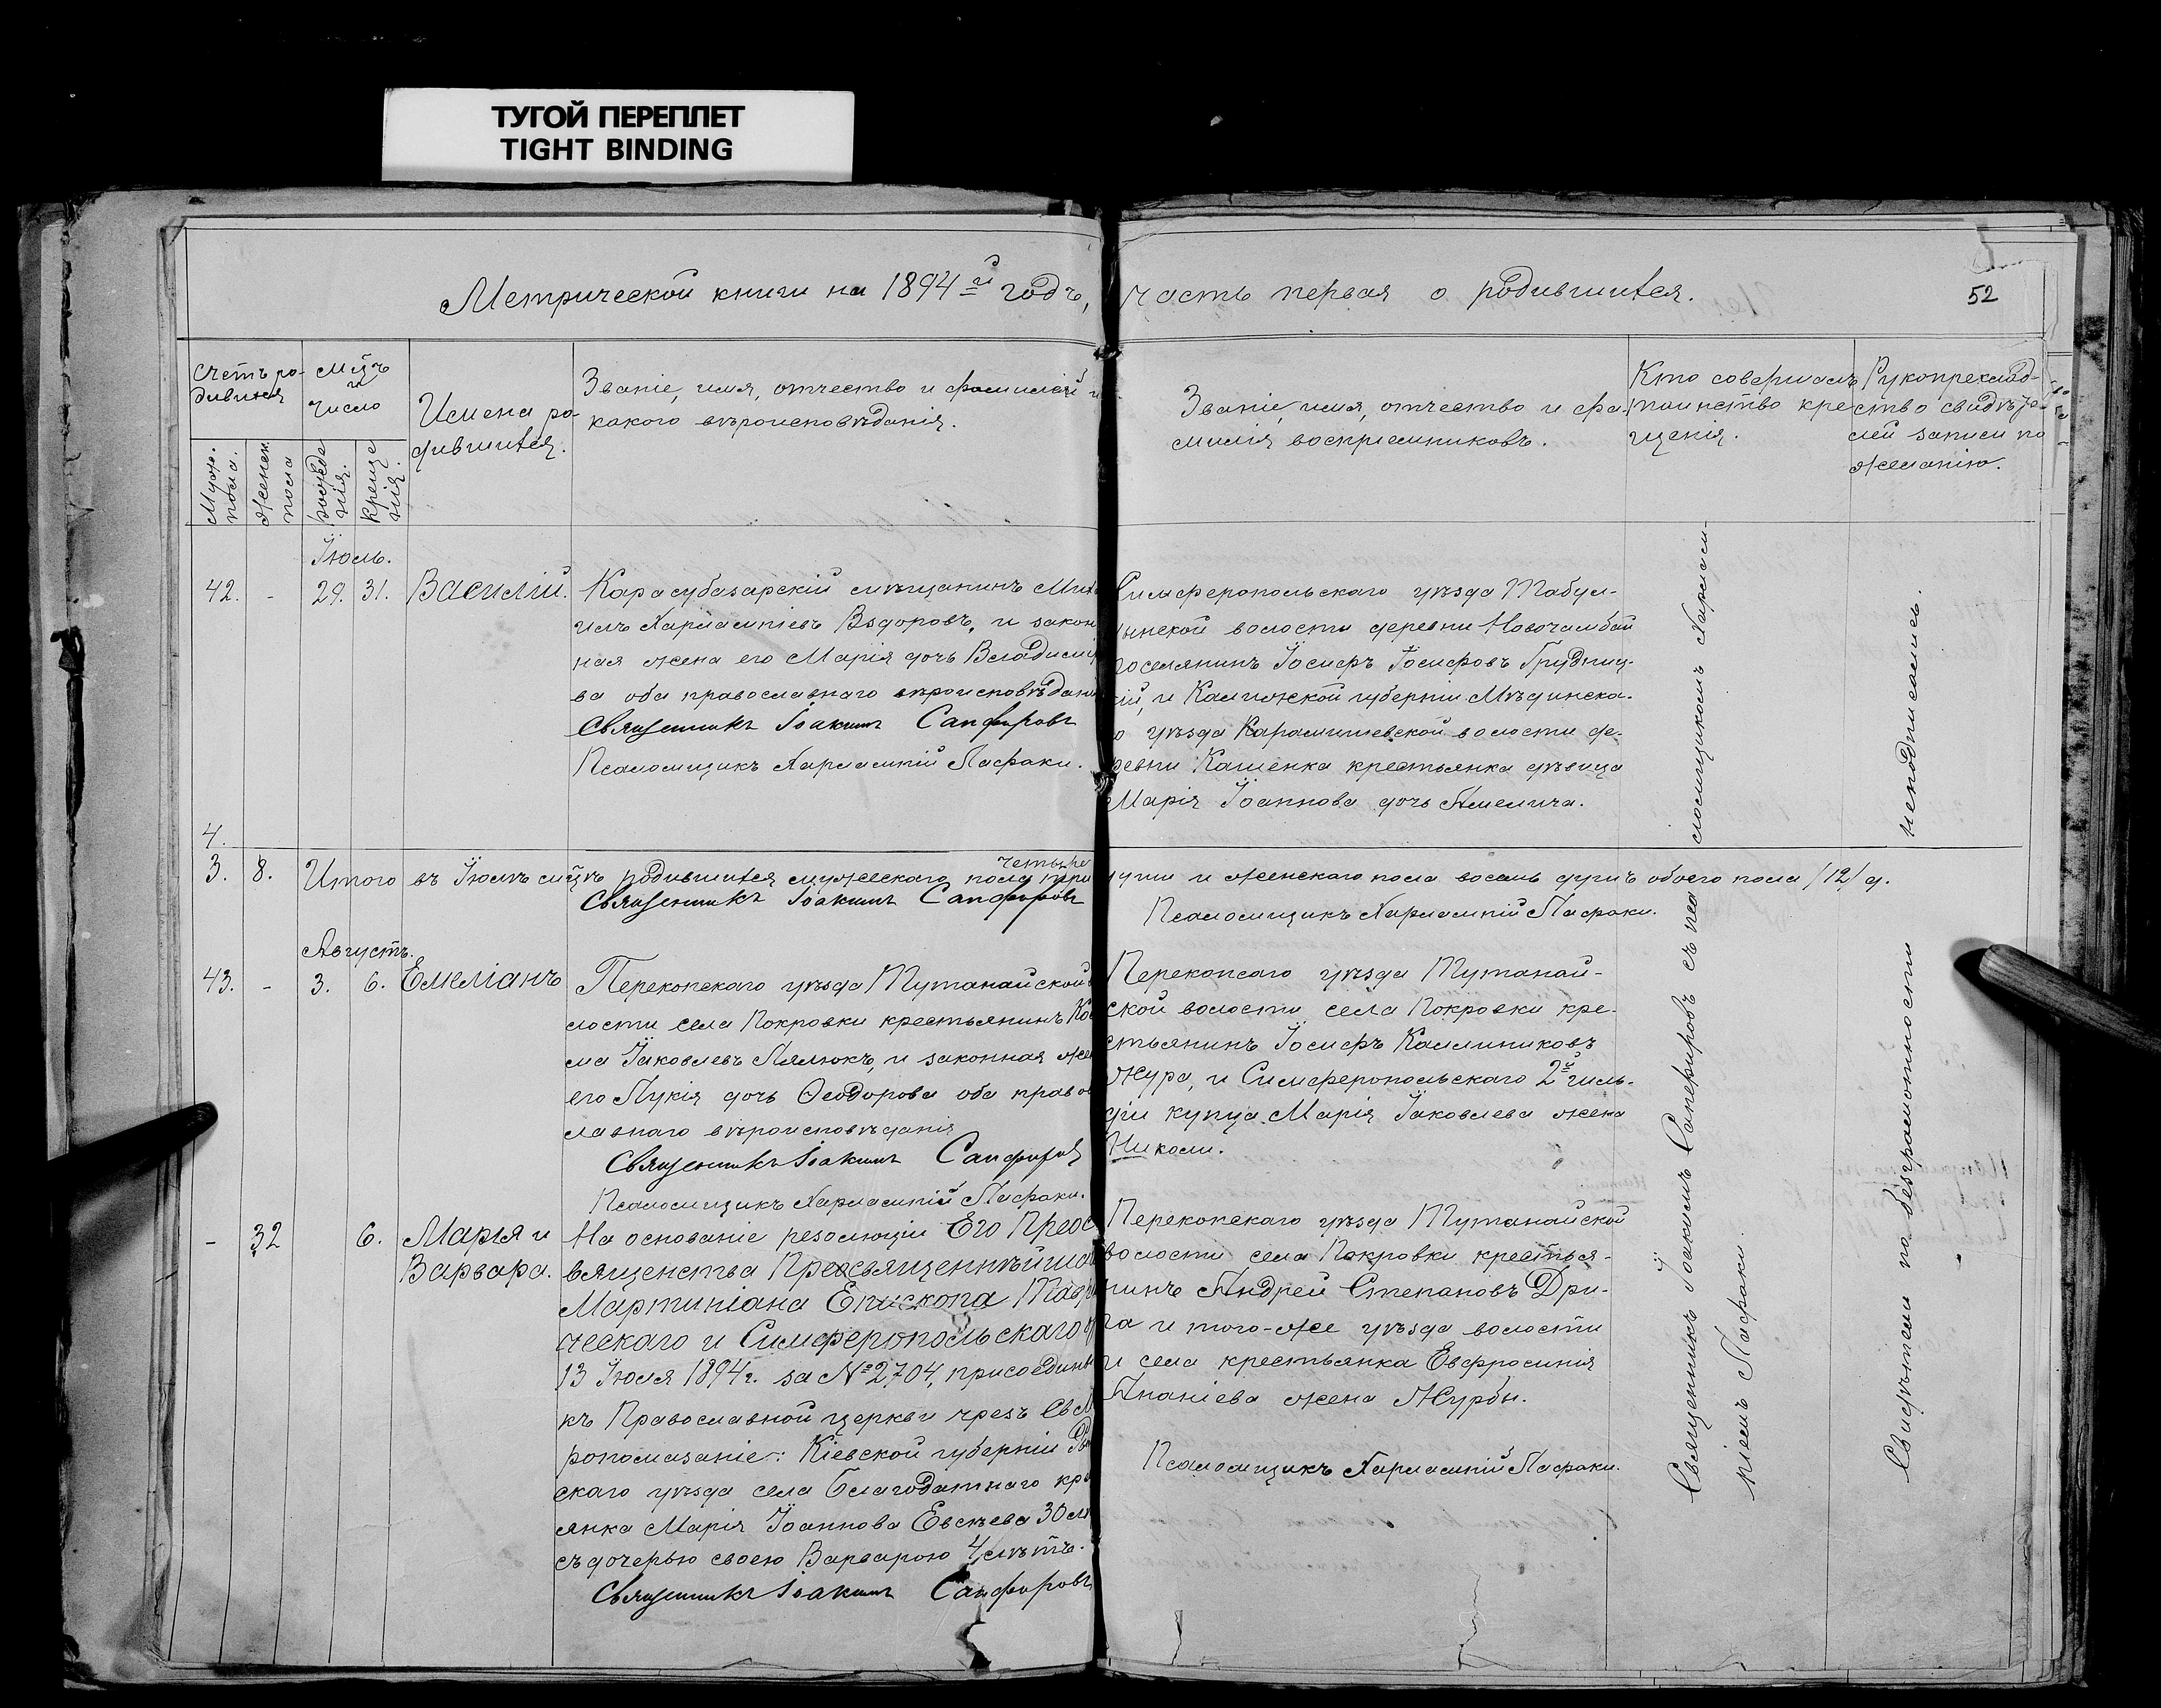 ТУГОЙ ПЕРЕПЛЕТ
TIGHT BINDING
Метрической книги на 1894й годъ, часть первая о родившихся.
52
Счетъ ро-
дивихся
Муж. пола.
Женск. пола
мцъ и число
рождения.
крещения.
Имена ро-
дившихся.
Званіе, имя, отчество и фамилія и
какого вѣроисповѣданія.
Званіе, имя, отчество и фа-
милія воспріемниковъ.
Кто совершалъ
таинство кре-
щенія.
Рукоприклад-
ство свидѣте-
лей записи по
желанію.
Іюль.
42. - 29. 31. Василій.
Карасубазарскій мѣщанинъ Миха
илъ Харлампіевъ Вздоровъ, и закон
ная жена его Марія дочь Владимір
ва оба православнаго вѣроисповѣдан
Священникъ Іоакимъ Сапфировъ
Псаломщикъ Харлампій Пафаки.
Симферопольскаго уѣзда Табул-
дынской волости деревни Новочамбай
поселянинъ Іосифъ Іосифовъ Грудниц-
кій, и Калужской губерніи Мѣдинска-
о уѣзда Карамышевской волости де-
ревни Каменка крестьянка дѣвица
Марія Іоаннова дочь Амелича.
4.
3. 8. Итого въ Іюлѣ мцѣ родившихся мужескаго пола три
четыре
души и женскаго пола восемь душъ обоего пола /12/ д.
Священникъ Іоакимъ Сапфировъ
Псаломщикъ Харлампій Пафаки.
Августъ.
43. - 3. 6. Емеліанъ
Перекопскаго уѣзда Тутанайской
лости села Покровки крестьянинъ Кос
ма Іаковлевъ Лялюкъ, и законная жен
его Лукія дочь Ѳеодорова оба правос
лавнаго вѣроисповѣданія
Священникъ Іоакимъ Сапфировъ
Псаломщикъ Харлампій Пафаки.
Перекопсаго уѣзда Тутанай-
ской волости села Покровки кре-
стьянинъ Іосифъ Каллиниковъ
Жура, и Симферопольскаго 2й гиль-
діи купца Марія Іаковлева жена
Николи.
- 32 6. Марія и
Варвара.
На основаніе резолюціи Его Преос
вященства Преосвященнѣйшаго
Мартиніана Епископа Таври
ческаго и Симферопольскаго
13 Іюля 1894г. за №2704, присоединен
къ Православной церкви чрезъ Св М
ропомазаніе: Кіевской губерніи
скаго уѣзда села Благодатнаго кре
янка Марія Іоаннова Евсѣева 30 лѣ
съ дочерью своею Варварою 4 лѣтъ.
Священникъ Іоакимъ Сапфировъ
Перекопскаго уѣзда Тутанайской
волости села Покровки крестья-
нинъ Андрей Степановъ Дри-
га и того-же уѣзда волости
и села крестьянка Евфросинія
Ананіева жена Журбы.
Псаломщикъ Харлампій Пафаки.
Священникъ Іоакимъ Сапфировъ съ псаломщикомъ Харлам-
піемъ Пафаки.
Свидѣтели по безграмотности неподписались.